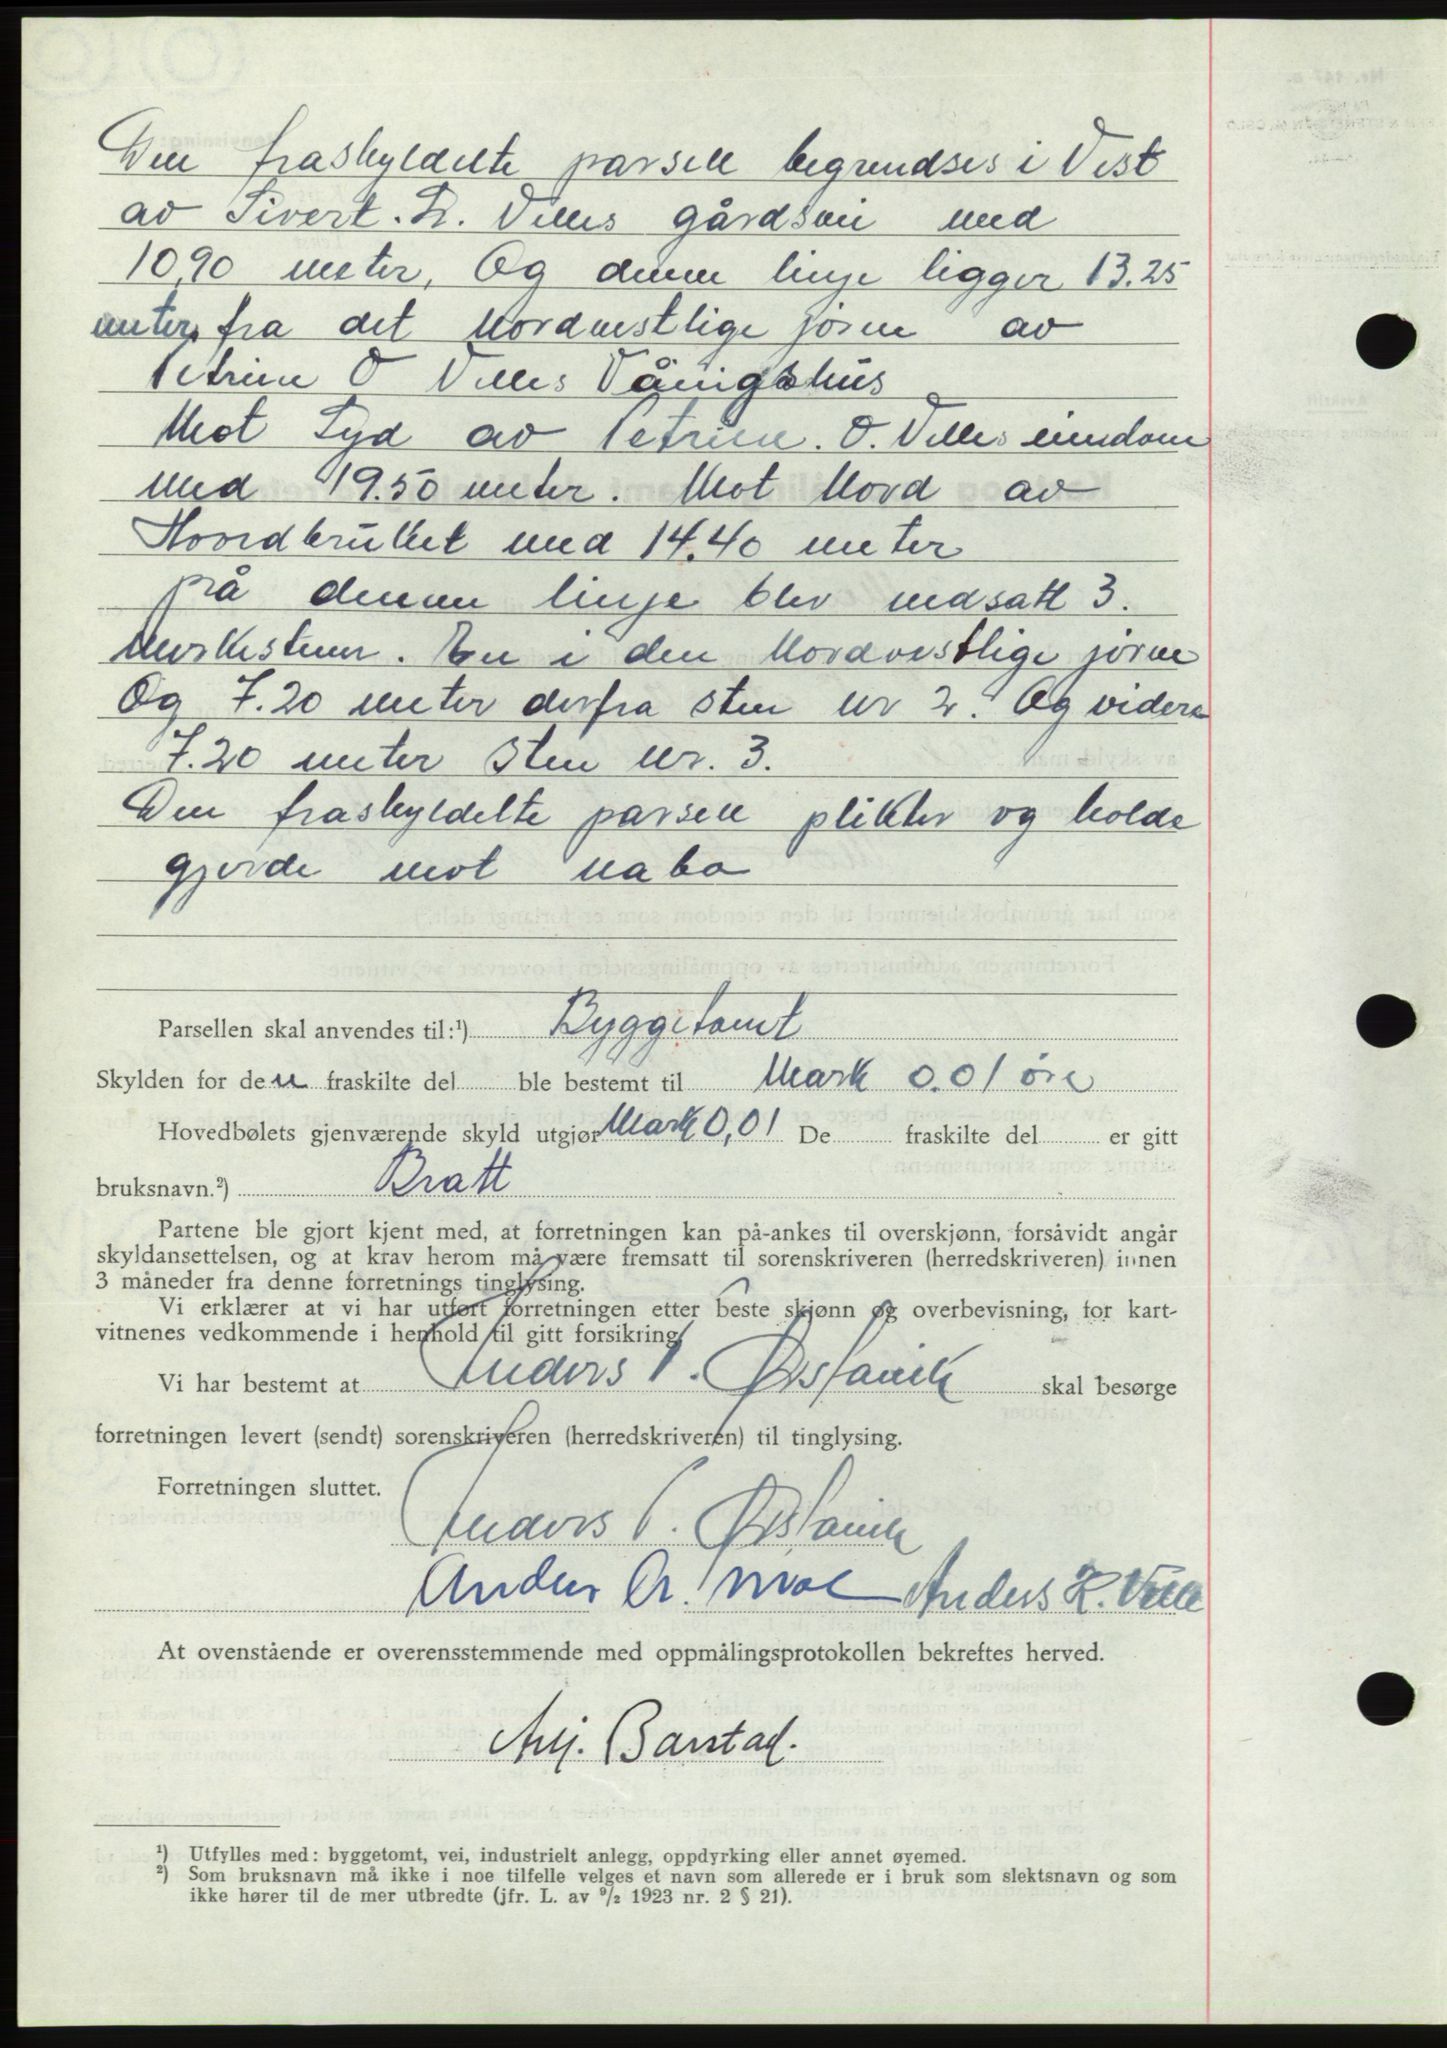 Den fraskyldelte parsell begrendses i Vest
av Sivert. L. Velles gårdsvei med
10,90 meter, Og denne linje ligger 13.25
meter, fra det Nordvestlige jørne av
Petrine O Velles Våningshus
Mot Syd av Petrine. O. Velles eiendom
med 19.50 meter. Mot Nord av
Hovedbruket med 14.40 meter
på denne linje blev nedsatt 3.
Merkestener. En i den Nordvestlige jørne
Og 7.20 meter derfra sten nr 2. Og videre
7.20 meter sten nr. 3.
Den fraskyldelte parsell plikter og holde
gjerde mot nabo
Parsellen skal anvendes til:¹) Byggetomt
Skylden for den fraskilte del ble bestemt til Mark 0.01 øre
Hovedbølets gjenværende skyld utgjør Mark 0,01 De fraskilte del er gitt
bruksnavn.²) Bratt
Partene ble gjort kjent med, at forretningen kan på-ankes til overskjønn, forsåvidt angår
skyldansettelsen, og at krav herom må være fremsatt til sorenskriveren (herredskriveren) innen
3 måneder fra denne forretnings tinglysing.
Vi erklærer at vi har utført forretningen etter beste skjønn og overbevisning, for kart-
vitnenes vedkommende i henhold til gitt forsikring.
Vi har bestemt at Anders P. Ørstavik skal besørge
forretningen levert (sendt) sorenskriveren (herredskriveren) til tinglysing.
Forretningen sluttet.
Anders P. Ørstavik
Anders A. Moe Anders K. Velle
At ovenstående er overensstemmende med oppmålingsprotokollen bekreftes herved.
Barstad.
¹) Utfylles med: byggetomt, vei, industrielt anlegg, oppdyrking eller annet øyemed.
²) Som bruksnavn må ikke i noe tilfelle velges et navn som allerede er i bruk som slektsnavn og som
ikke hører til de mer utbredte (jfr. L. av ⁹/₂ 1923 nr. 2 § 21).